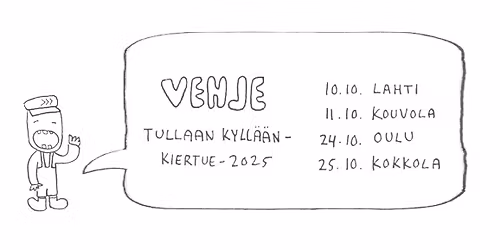 VENJE
TULLAAN KYLLÄÄN-
KIERTUE-2025
10.10. LAHTI
11.10. KOUVOLA
24.10. OULU
25.10. KOKKOLA